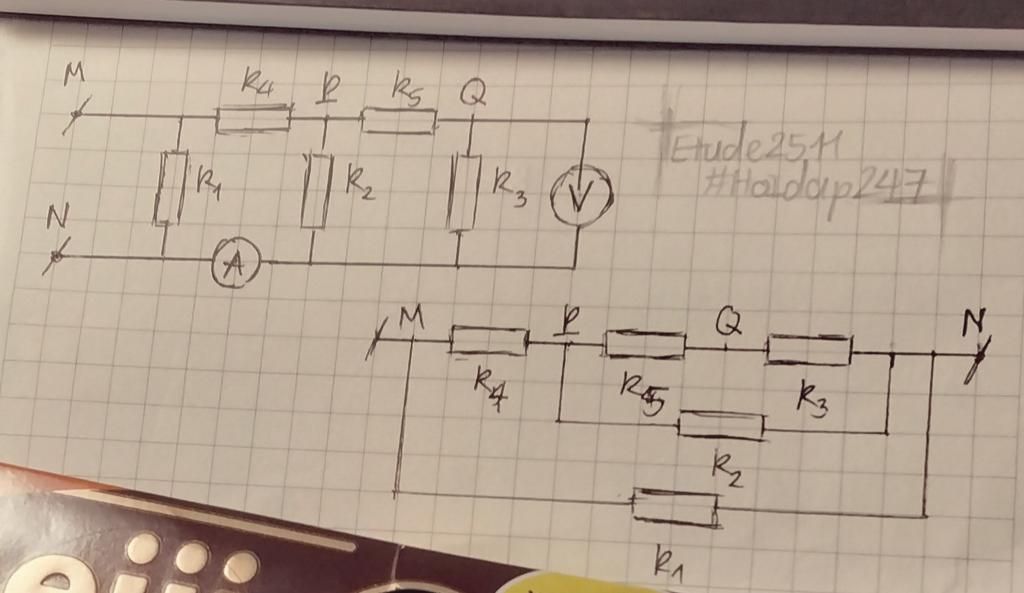 M R4 P R5 Q
R1 R2 R3 V
N A
Etude2511
#Hoidap247
M P Q N
R4 R5 R3
R2
R1